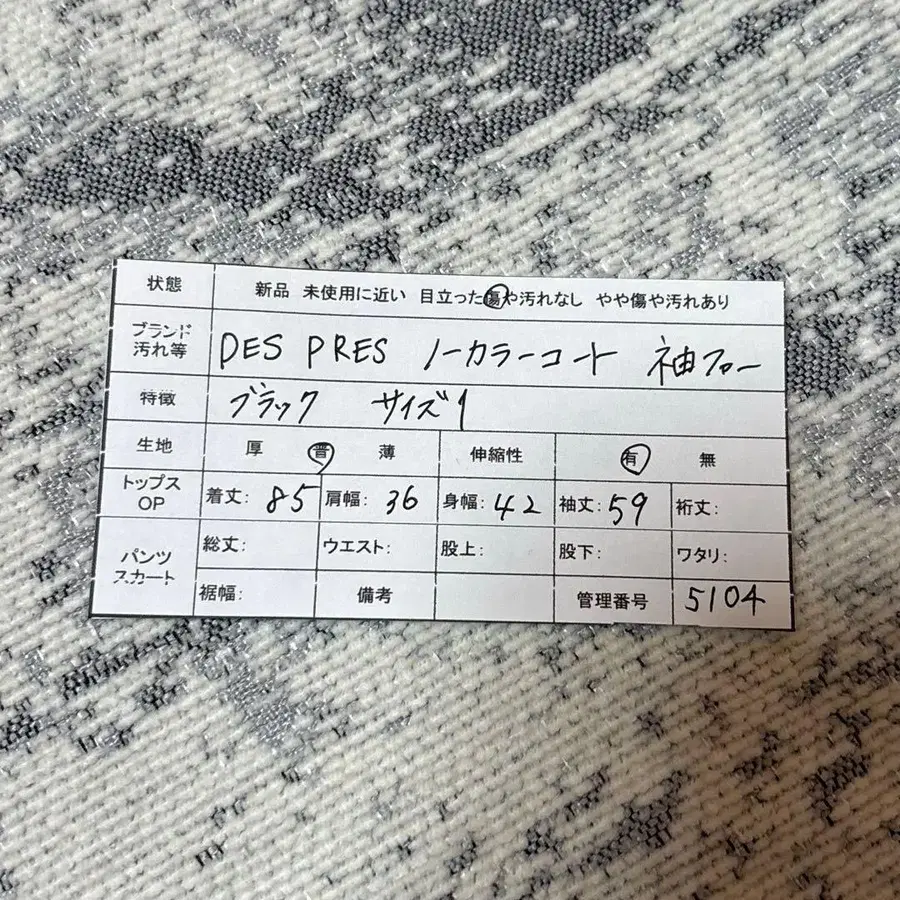 状態 新品 未使用に近い 目立った傷や汚れなし やや傷や汚れあり
ブランド 汚れ等 DES PRES ノーカラーコート 袖ファー
特徴 ブラック サイズ1
生地 厚 普 薄 伸縮性 有 無
トップス OP 着丈: 85 肩幅: 36 身幅: 42 袖丈: 59 裄丈:
パンツ スカート 総丈: ウエスト: 股上: 股下: ワタリ:
裾幅: 備考 管理番号 5104